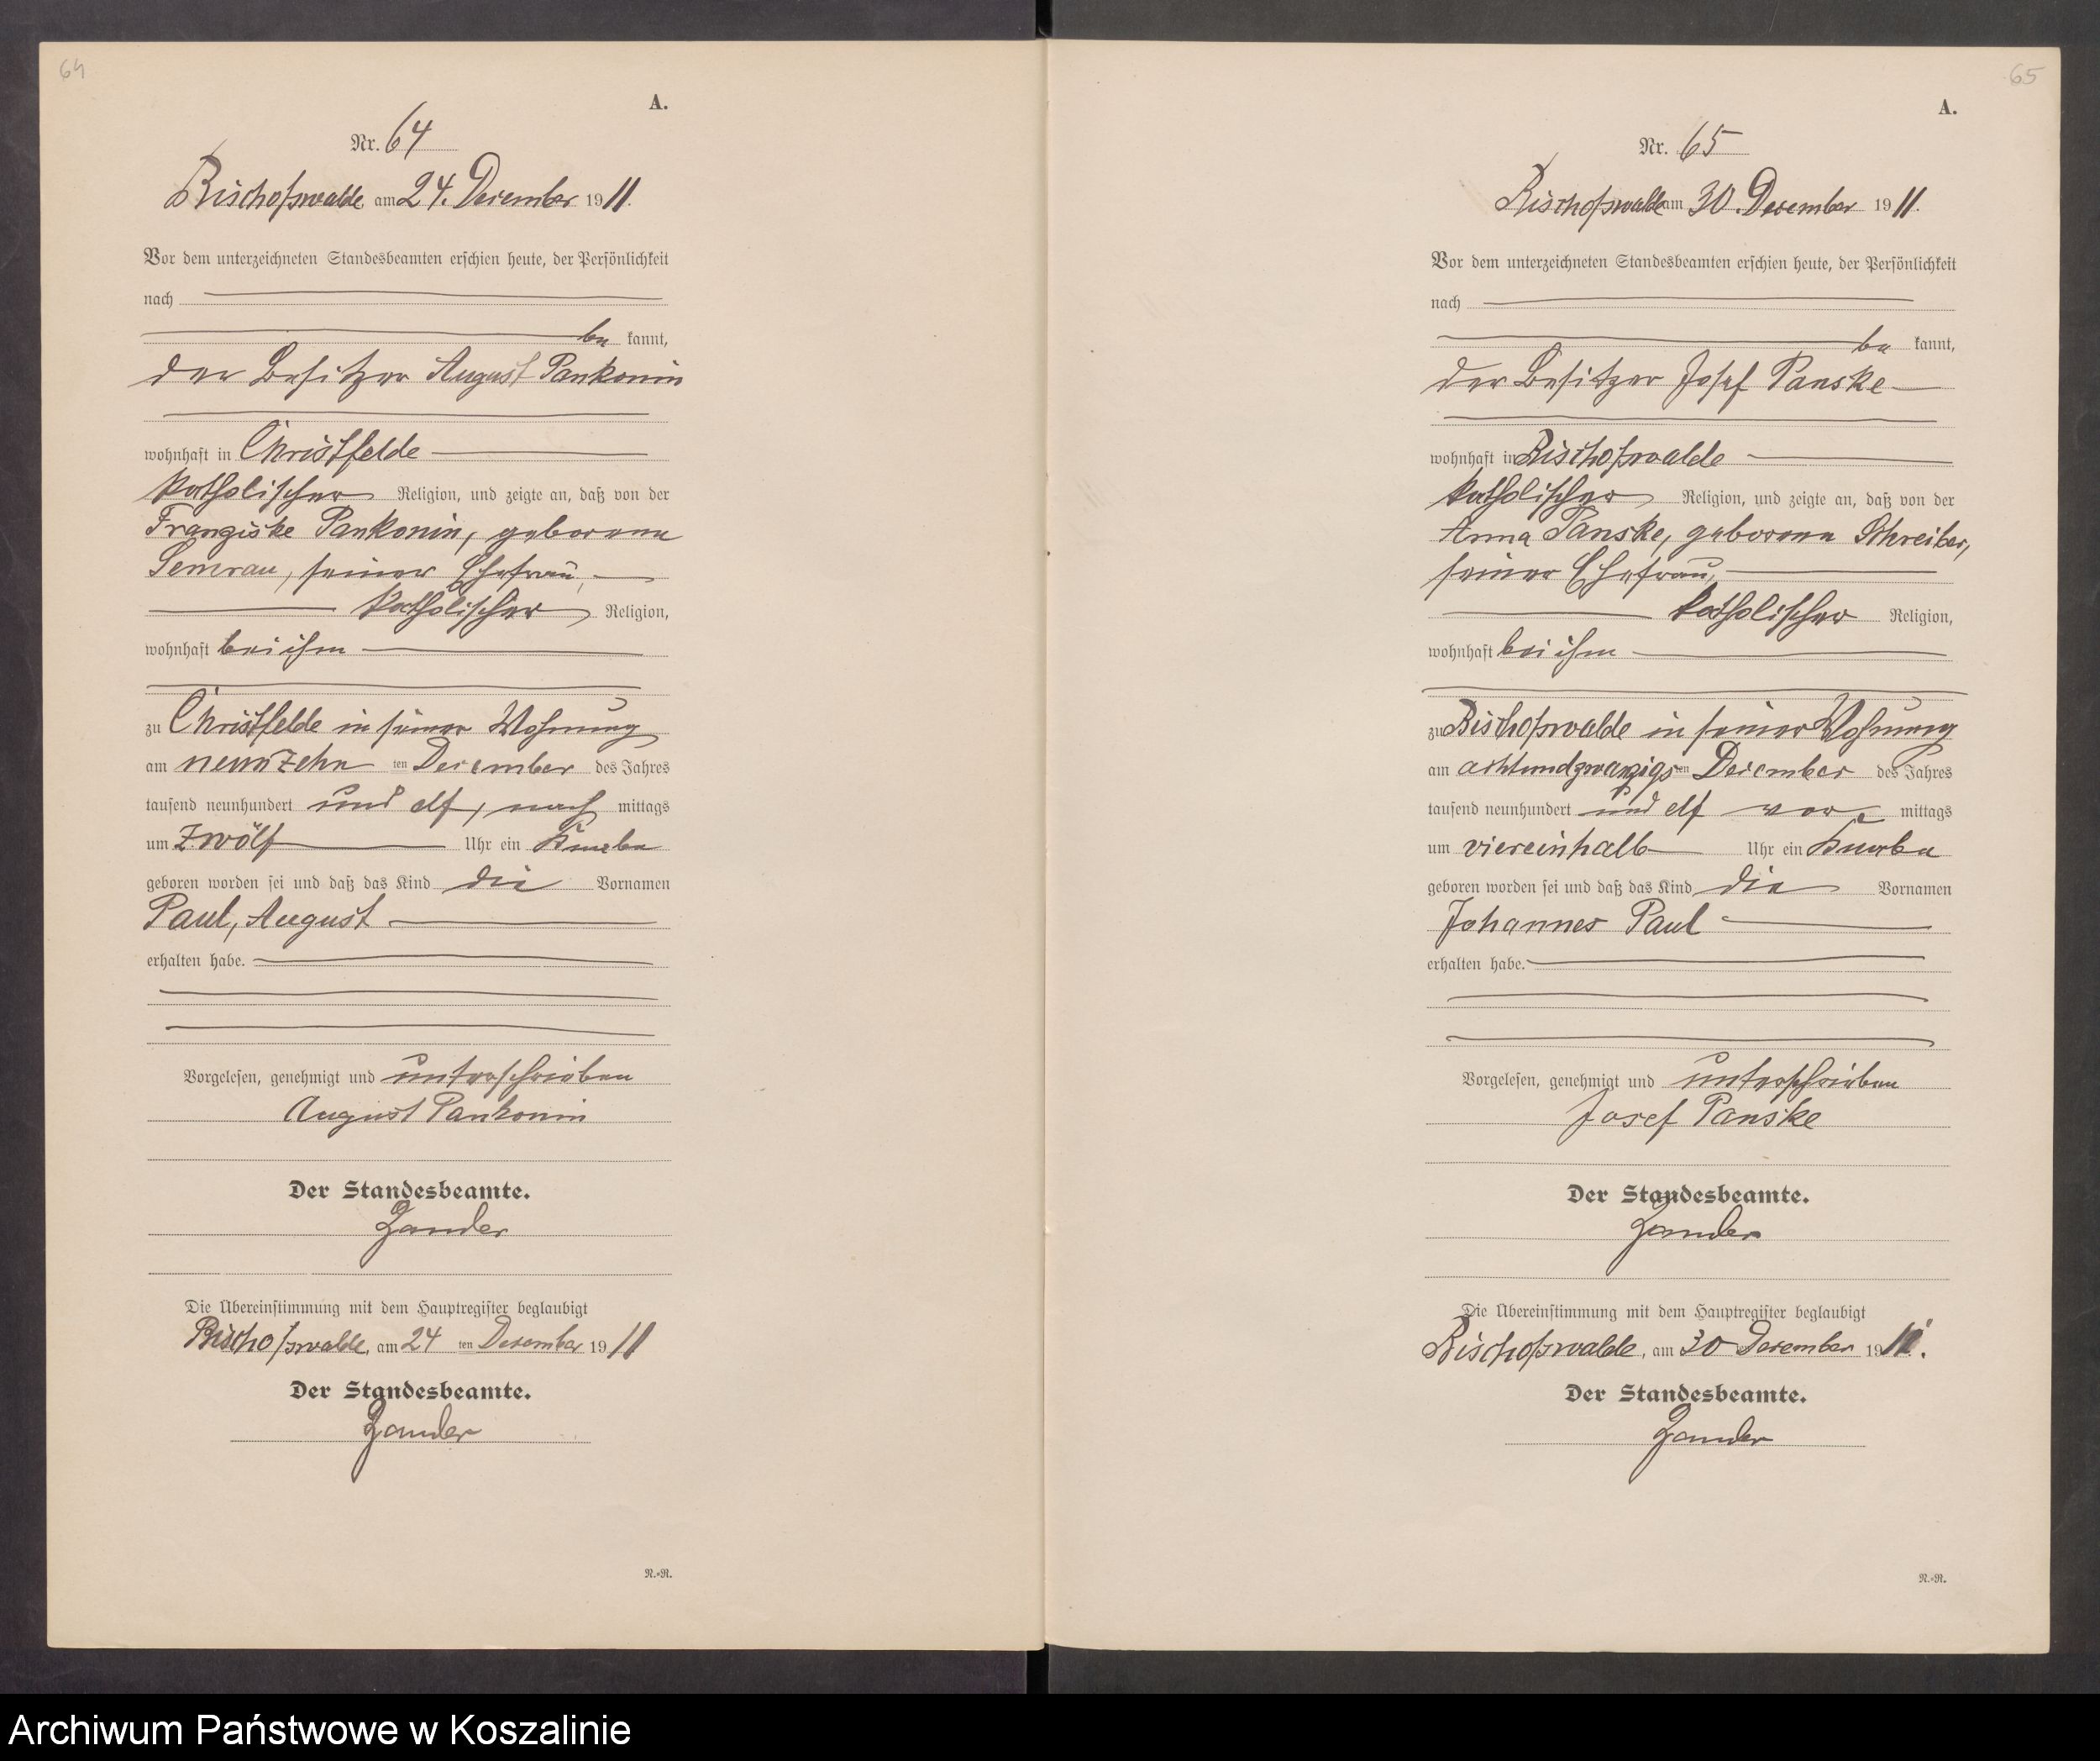 64
A.
Nr. 64
Bischofswalde, am 24. Dezember 1911.
Vor dem unterzeichneten Standesbeamten erschien heute, der Persönlichkeit
nach
be kannt,
der Besitzer August Pankonin
wohnhaft in Christfelde
katholischer Religion, und zeigte an, daß von der
Franziske Pankonin, geborene
Semrau, seiner Ehefrau,
katholischer Religion,
wohnhaft bei ihm
zu Christfelde in seiner Wohnung
am neunzehn ten Dezember des Jahres
tausend neunhundert und elf, nach mittags
um zwölf Uhr ein Knabe
geboren worden sei und daß das Kind die Vornamen
Paul, August
erhalten habe.
Vorgelesen, genehmigt und unterschrieben
August Pankonin
Der Standesbeamte.
Zander
Die Übereinstimmung mit dem Hauptregister beglaubigt
Bischofswalde, am 24 ten Dezember 1911
Der Standesbeamte.
Zander
N.=R.
65
A.
Nr. 65
Bischofswalde am 30. Dezember 1911.
Vor dem unterzeichneten Standesbeamten erschien heute, der Persönlichkeit
nach
be kannt,
der Besitzer Josef Panske
wohnhaft in Bischofswalde
katholischer Religion, und zeigte an, daß von der
Anna Panske, geborene Schreiber,
seiner Ehefrau,
katholischer Religion,
wohnhaft bei ihm
zu Bischofswalde in seiner Wohnung
am achtundzwanzigsten Dezember des Jahres
tausend neunhundert und elf vor mittags
um viereinhalb Uhr ein Knabe
geboren worden sei und daß das Kind die Vornamen
Johannes Paul
erhalten habe.
Vorgelesen, genehmigt und unterschrieben
Josef Panske
Der Standesbeamte.
Zander
Die Übereinstimmung mit dem Hauptregister beglaubigt
Bischofswalde, am 30 Dezember 1911.
Der Standesbeamte.
Zander
N.=R.
Archiwum Państwowe w Koszalinie